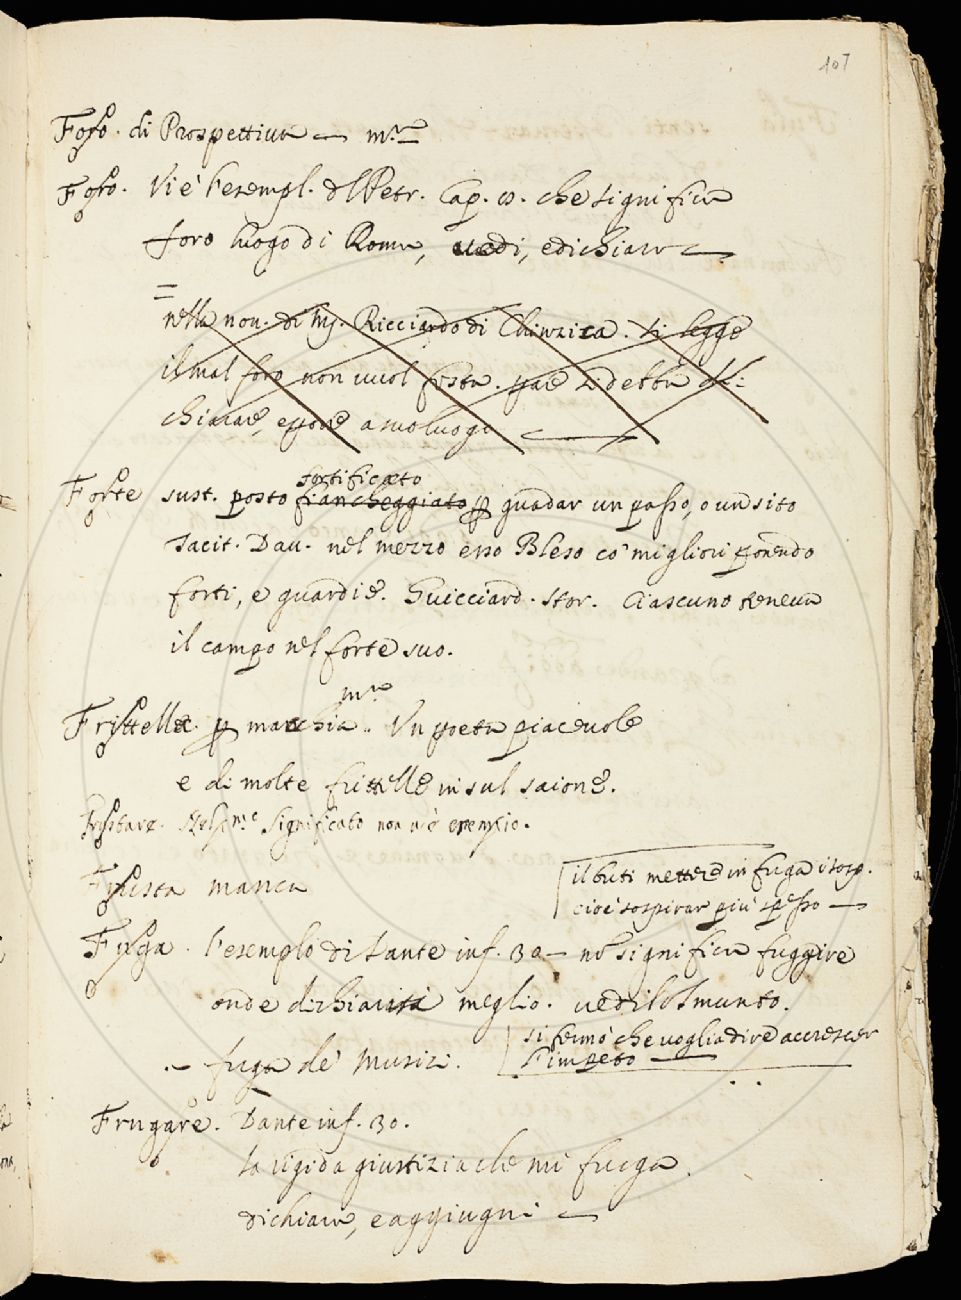 107
Foro. di Prospettiva — m.re
Foro. Vi è l'esempl. dl Petr. Cap. 10. che significa
foro luogo di Roma, vedi, e dichiara —
nella nov. di M. Ricciardo di Chinzica. si legge
il mal foro non vuol festa. par si debba di=
chiarare, e porre a suo luogo —
fortificato
Forte sust. posto fiancheggiato p guardar un passo, o un sito
Tacit. Dav. nel mezzo esso Bleso co' migliori ponendo
forti, e guardie. Guicciard. stor. Ciascuno teneva
il campo nel forte suo.
Frittella. p macchia. Un poeta piacevole
e di molte frittelle in sul saione.
significato non v'è esempio.
Frusta manca
il buti mettere in fuga i sosp.
cioè sospirar più spesso —
Fuga. l'esemplo di Dante inf. 30 — nō significa fuggire
onde dichiarisi meglio. vedilo smunto.
si fermò che voglia dire accrescer
l'impeto —
— fuga de' Musici.
Frugare. Dante inf. 30.
la rigida giustizia che mi fruga.
dichiara, e aggiugni —